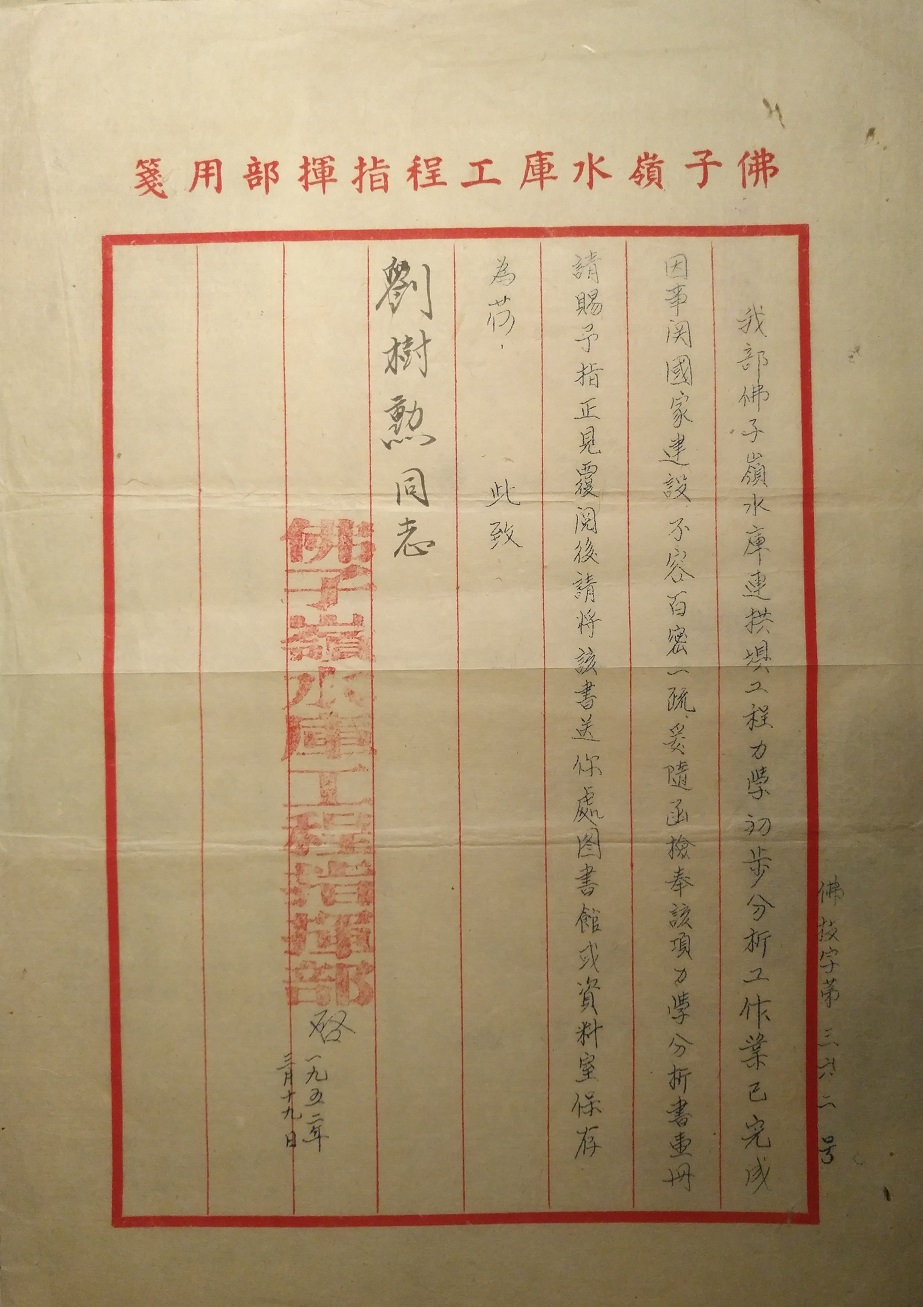 佛子嶺水庫工程指揮部用箋
佛技字第三六二号
我部佛子嶺水庫連拱壩工程力學初步分析工作業已完成
因事関國家建設不容百密一疏,爰隨函檢奉該項力學分析書壹冊
請賜予指正見覆閱後請将該書送你處图書館或資料室保存
為荷, 此致
劉樹勲同志
佛子嶺水庫工程指揮部
啓
一九五二年
三月十九日